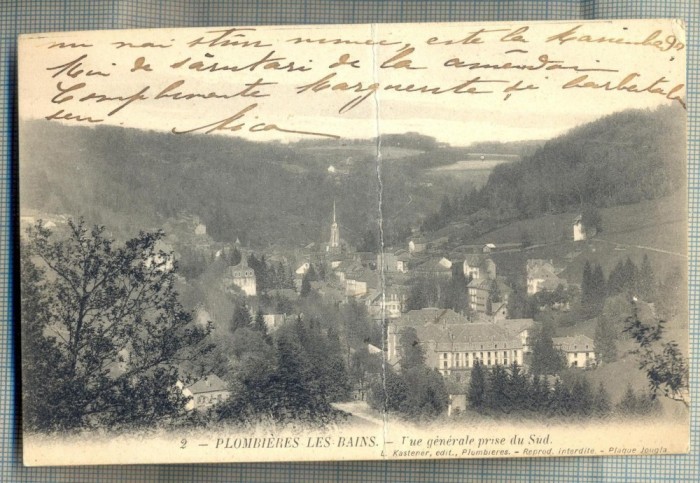 nu mai știm nimic, este la Marienbad?
Mii de sărutari de la amândoi
Complimente Marguerite și barbatului
seu Mica
2 — PLOMBIÈRES LES BAINS. — Vue générale prise du Sud.
L. Kastener, edit., Plombières. - Reprod. interdite. - Plaque Jougla.